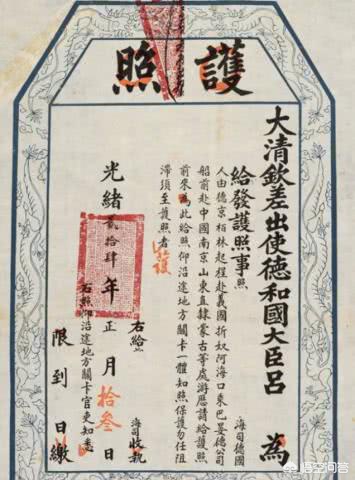 護照
大清欽差出使德和國大臣呂 為
給發護照事照
海司德國
人由德京栢林起程赴義國折奴阿海口乘巴晏德公司
船前赴中國南京山東直隸蒙古等處游歷請給護照
前來為此給照仰沿途地方關卡一體知照保護勿任阻
滯須至護照者
護
右給 海司收執
光緒貳拾肆年正月拾叁日
右照仰沿途地方關卡官吏知悉
限到 日繳
悟空问答